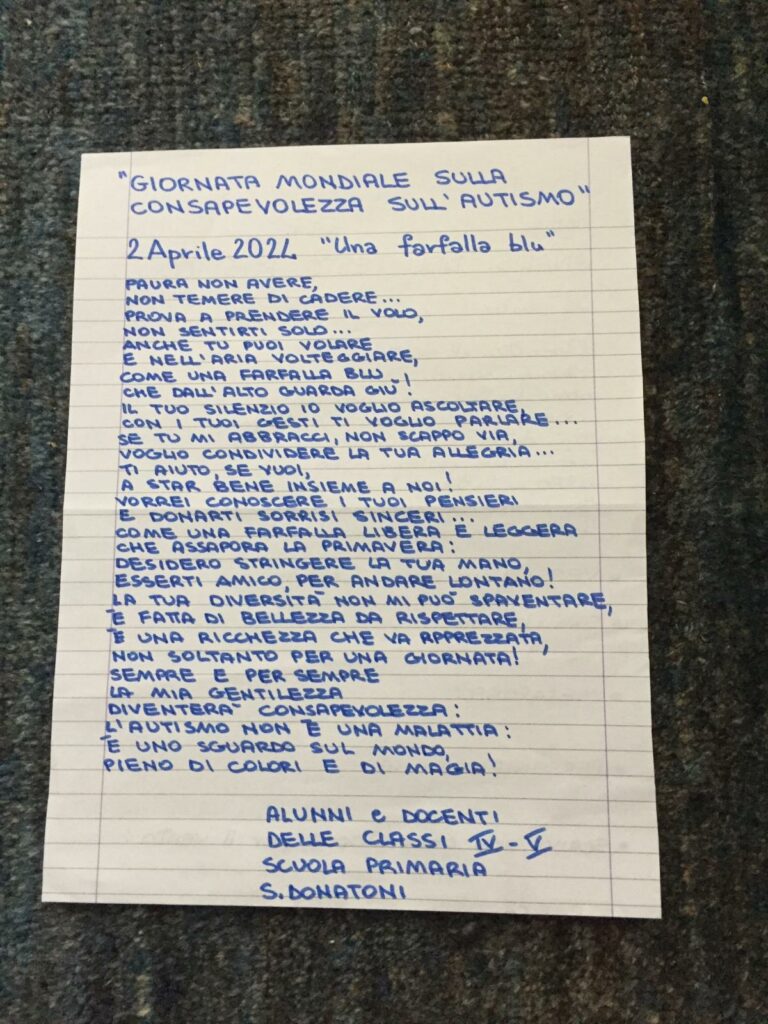 "GIORNATA MONDIALE SULLA
CONSAPEVOLEZZA SULL'AUTISMO"
2 Aprile 2024 "Una farfalla blu"
PAURA NON AVERE,
NON TEMERE DI CADERE...
PROVA A PRENDERE IL VOLO,
NON SENTIRTI SOLO...
ANCHE TU PUOI VOLARE
E NELL'ARIA VOLTEGGIARE,
COME UNA FARFALLA BLU
CHE DALL'ALTO GUARDA GIÙ!
IL TUO SILENZIO IO VOGLIO ASCOLTARE,
CON I TUOI GESTI TI VOGLIO PARLARE...
SE TU MI ABBRACCI, NON SCAPPO VIA,
VOGLIO CONDIVIDERE LA TUA ALLEGRIA...
TI AIUTO, SE VUOI,
A STAR BENE INSIEME A NOI!
VORREI CONOSCERE I TUOI PENSIERI
E DONARTI SORRISI SINCERI...
COME UNA FARFALLA LIBERA E LEGGERA
CHE ASSAPORA LA PRIMAVERA:
DESIDERO STRINGERE LA TUA MANO,
ESSERTI AMICO, PER ANDARE LONTANO!
LA TUA DIVERSITÀ NON MI PUÒ SPAVENTARE,
È FATTA DI BELLEZZA DA RISPETTARE,
È UNA RICCHEZZA CHE VA APPREZZATA,
NON SOLTANTO PER UNA GIORNATA!
SEMPRE E PER SEMPRE
LA MIA GENTILEZZA
DIVENTERÀ CONSAPEVOLEZZA:
L'AUTISMO NON È UNA MALATTIA:
È UNO SGUARDO SUL MONDO,
PIENO DI COLORI E DI MAGIA!
ALUNNI e DOCENTI
DELLE CLASSI IV - V
SCUOLA PRIMARIA
S. DONATONI